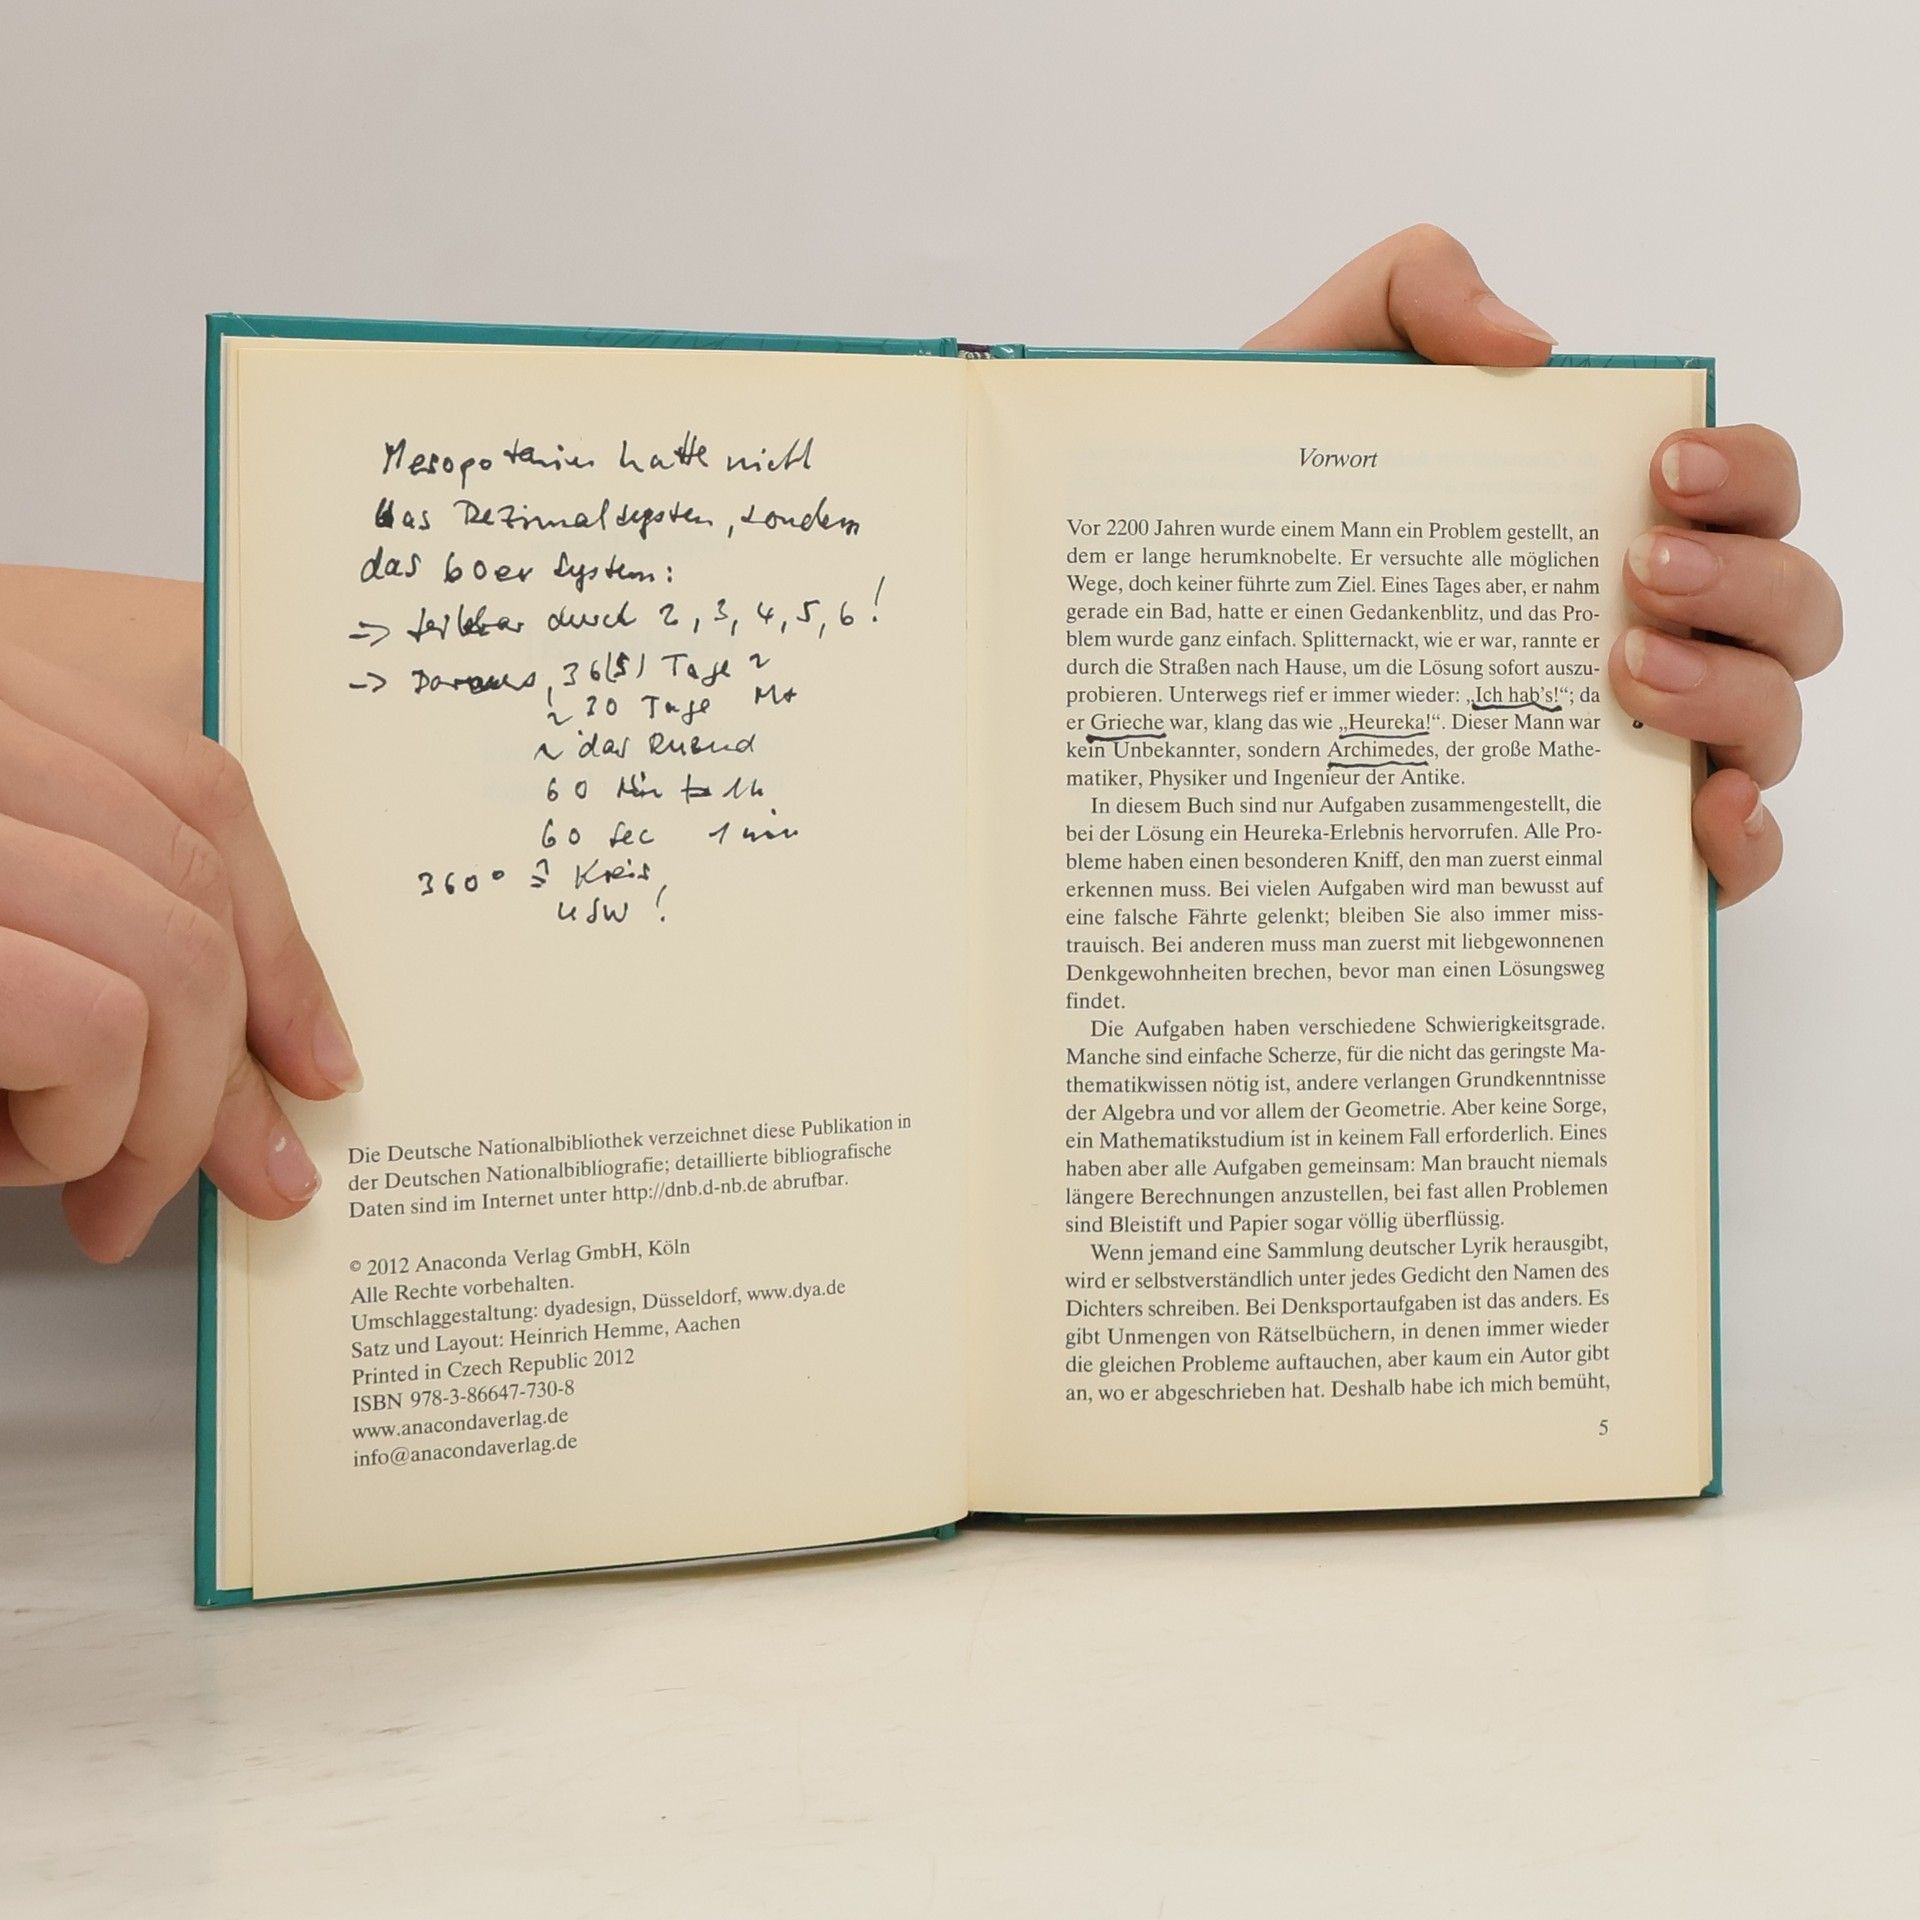 Mesopotamien hatte nicht
das Dezimalsystem, sondern
das 60er System:
=> teilbar durch 2, 3, 4, 5, 6!
-> Daraus, 36(5) Tage
30 Tage
das Rund
60 Min 1h
60 sec 1 min
360° ≙ Kreis
usw!
Die Deutsche Nationalbibliothek verzeichnet diese Publikation in
der Deutschen Nationalbibliografie; detaillierte bibliografische
Daten sind im Internet unter http://dnb.d-nb.de abrufbar.
© 2012 Anaconda Verlag GmbH, Köln
Alle Rechte vorbehalten.
Umschlaggestaltung: dyadesign, Düsseldorf, www.dya.de
Satz und Layout: Heinrich Hemme, Aachen
Printed in Czech Republic 2012
ISBN 978-3-86647-730-8
www.anacondaverlag.de
info@anacondaverlag.de
Vorwort
Vor 2200 Jahren wurde einem Mann ein Problem gestellt, an
dem er lange herumknobelte. Er versuchte alle möglichen
Wege, doch keiner führte zum Ziel. Eines Tages aber, er nahm
gerade ein Bad, hatte er einen Gedankenblitz, und das Pro-
blem wurde ganz einfach. Splitternackt, wie er war, rannte er
durch die Straßen nach Hause, um die Lösung sofort auszu-
probieren. Unterwegs rief er immer wieder: „Ich hab’s!“; da
er Grieche war, klang das wie „Heureka!“. Dieser Mann war
kein Unbekannter, sondern Archimedes, der große Mathe-
matiker, Physiker und Ingenieur der Antike.
In diesem Buch sind nur Aufgaben zusammengestellt, die
bei der Lösung ein Heureka-Erlebnis hervorrufen. Alle Pro-
bleme haben einen besonderen Kniff, den man zuerst einmal
erkennen muss. Bei vielen Aufgaben wird man bewusst auf
eine falsche Fährte gelenkt; bleiben Sie also immer miss-
trauisch. Bei anderen muss man zuerst mit liebgewonnenen
Denkgewohnheiten brechen, bevor man einen Lösungsweg
findet.
Die Aufgaben haben verschiedene Schwierigkeitsgrade.
Manche sind einfache Scherze, für die nicht das geringste Ma-
thematikwissen nötig ist, andere verlangen Grundkenntnisse
der Algebra und vor allem der Geometrie. Aber keine Sorge,
ein Mathematikstudium ist in keinem Fall erforderlich. Eines
haben aber alle Aufgaben gemeinsam: Man braucht niemals
längere Berechnungen anzustellen, bei fast allen Problemen
sind Bleistift und Papier sogar völlig überflüssig.
Wenn jemand eine Sammlung deutscher Lyrik herausgibt,
wird er selbstverständlich unter jedes Gedicht den Namen des
Dichters schreiben. Bei Denksportaufgaben ist das anders. Es
gibt Unmengen von Rätselbüchern, in denen immer wieder
die gleichen Probleme auftauchen, aber kaum ein Autor gibt
an, wo er abgeschrieben hat. Deshalb habe ich mich bemüht,
5